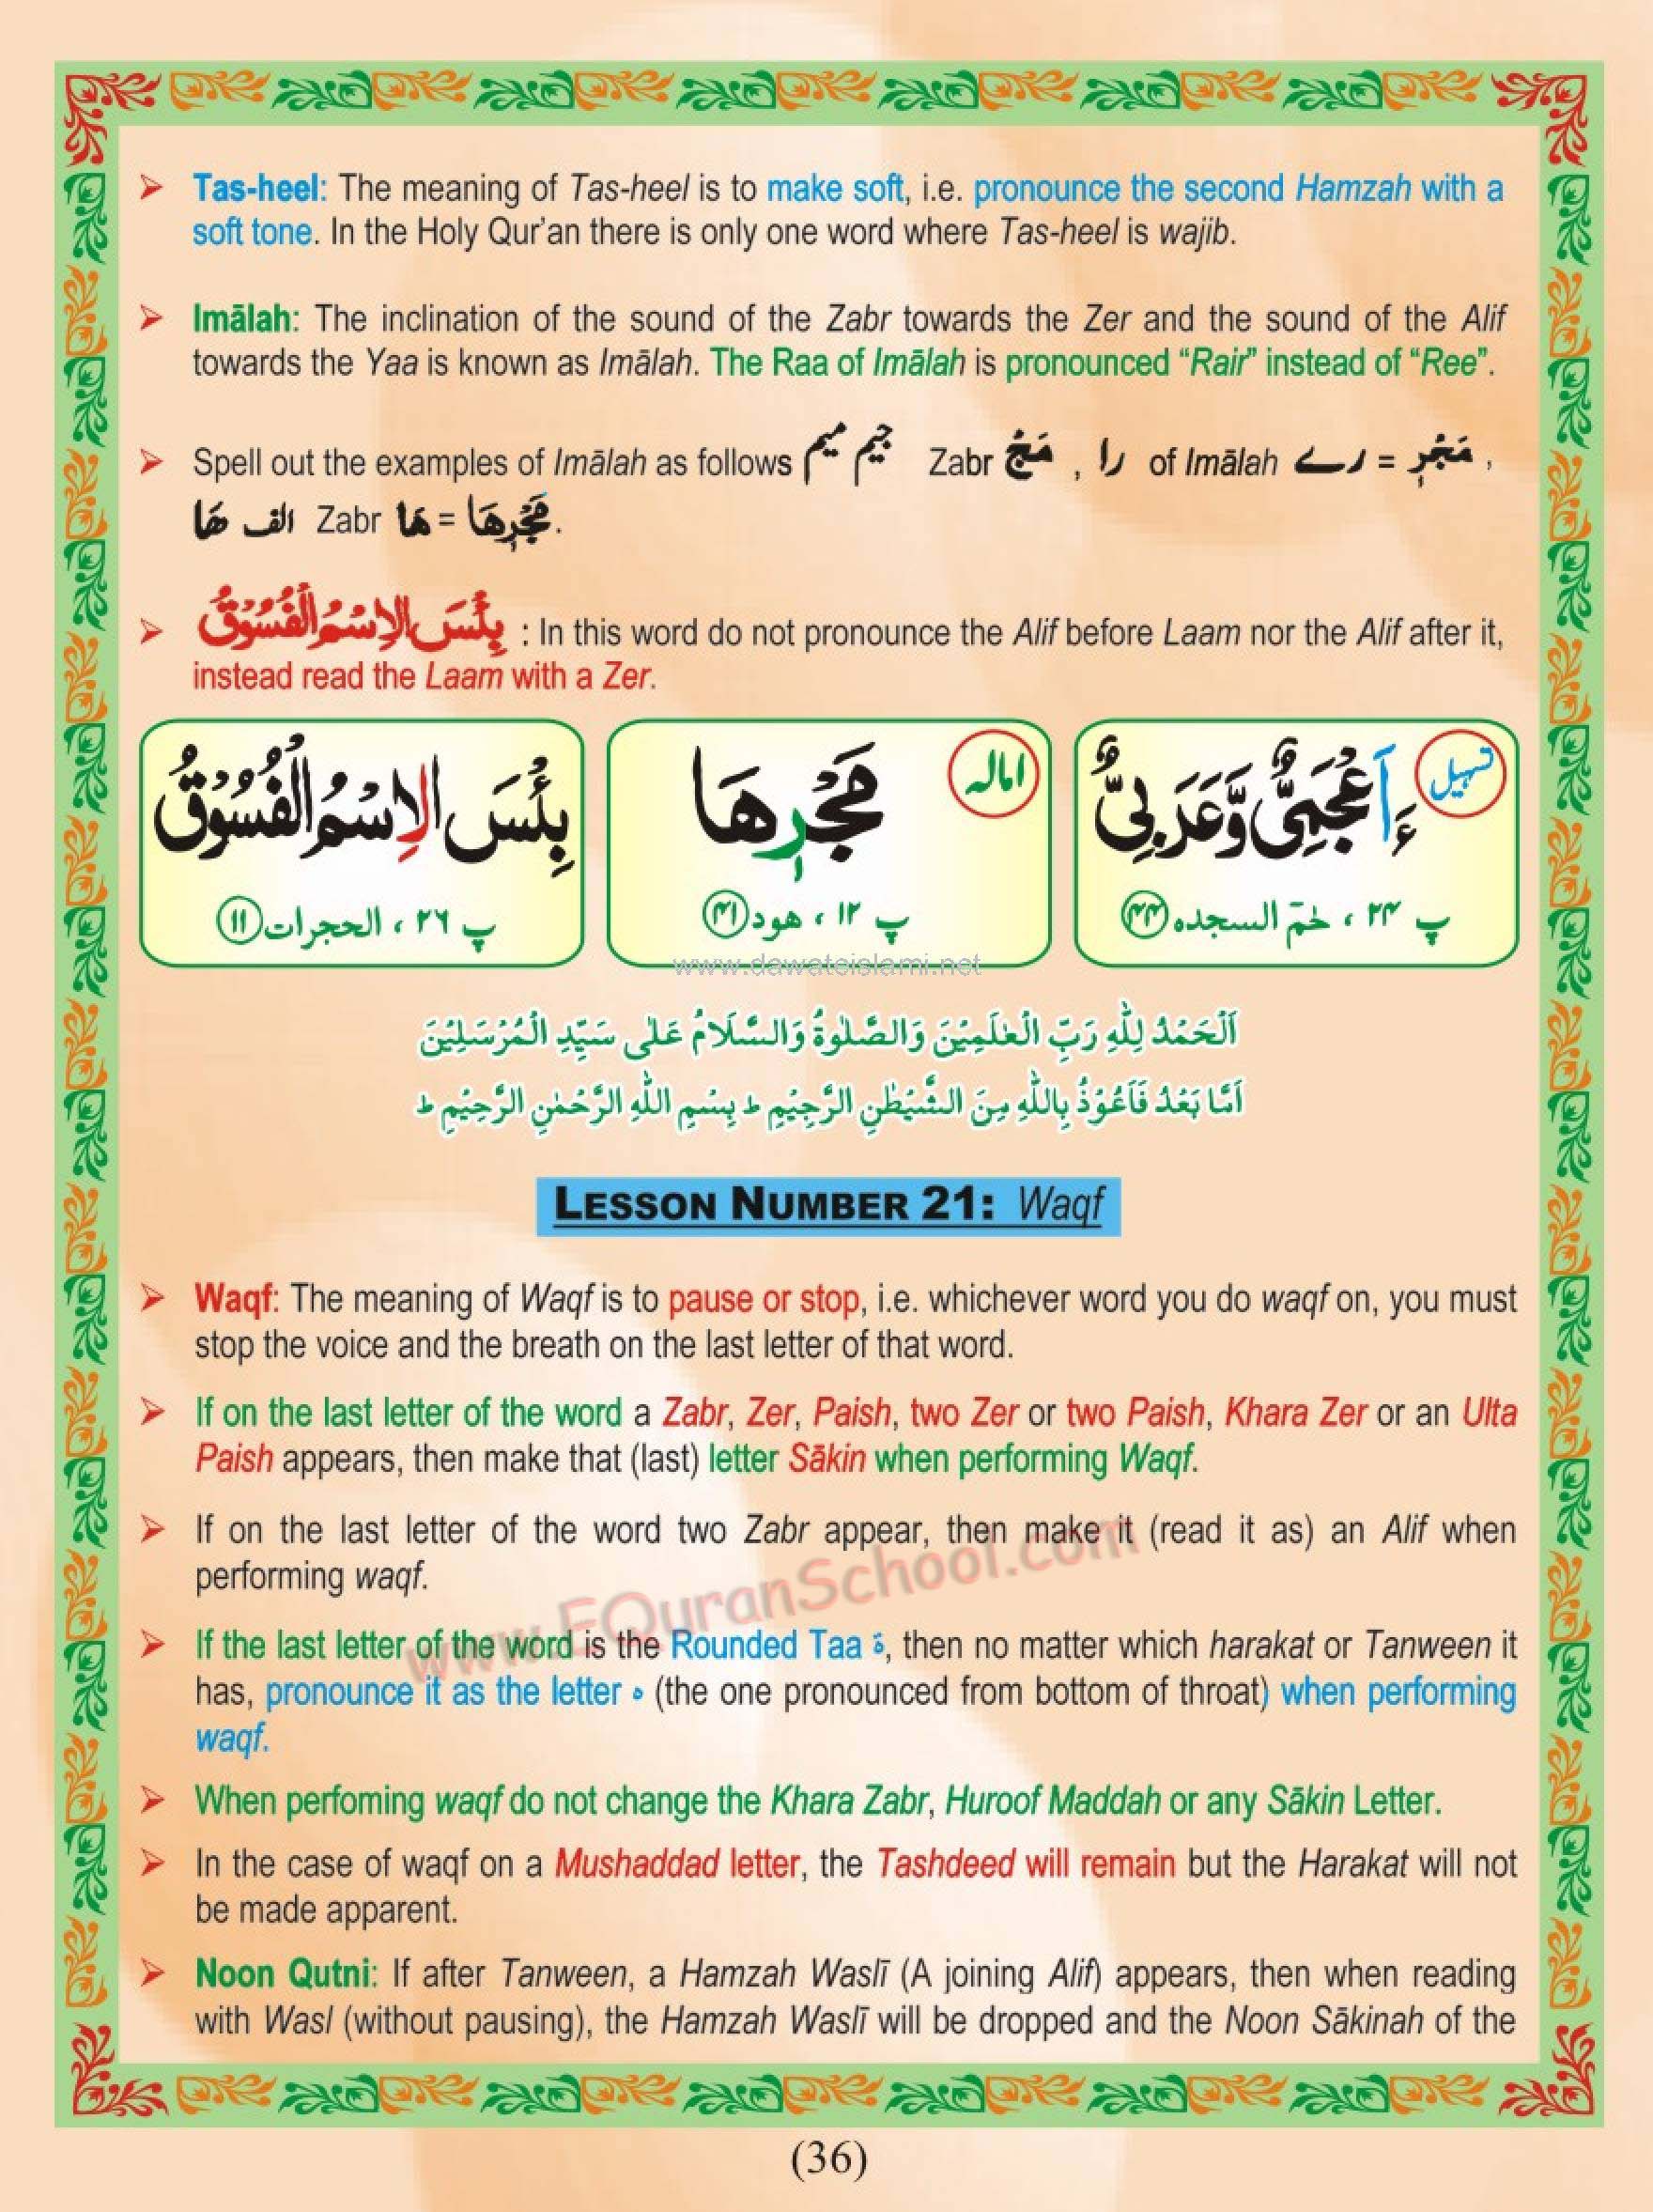 ➢ Tas-heel: The meaning of Tas-heel is to make soft, i.e. pronounce the second Hamzah with a
soft tone. In the Holy Qur'an there is only one word where Tas-heel is wajib.
➢ Imālah: The inclination of the sound of the Zabr towards the Zer and the sound of the Alif
towards the Yaa is known as Imālah. The Raa of Imālah is pronounced “Rair” instead of “Ree”.
➢ Spell out the examples of Imālah as follows میم جیم Zabr مَجْ , را of Imālah رے = مَجْرٖ ,
ھَا الف Zabr ھَا = مَجْرٖىهَا.
➢ بِئْسَ الِاسْمُ الْفُسُوْقُ : In this word do not pronounce the Alif before Laam nor the Alif after it,
instead read the Laam with a Zer.
تسہیل ءَاَعْجَمِيٌّ وَّعَرَبِيٌّ
پ ۲۴ ، حٰمٓ السجدہ ۴۴
امالہ مَجْرٖىهَا
پ ۱۲ ، ھود ۴۱
بِئْسَ الِاسْمُ الْفُسُوْقُ
پ ۲۶ ، الحجرات ۱۱
www.dawateislami.net
اَلْحَمْدُ لِلّٰهِ رَبِّ الْعٰلَمِيْنَ وَالصَّلٰوةُ وَالسَّلَامُ عَلٰى سَيِّدِ الْمُرْسَلِيْنَ
اَمَّا بَعْدُ فَاَعُوْذُ بِاللّٰهِ مِنَ الشَّيْطٰنِ الرَّجِيْمِ ط بِسْمِ اللّٰهِ الرَّحْمٰنِ الرَّحِيْمِ ط
LESSON NUMBER 21: Waqf
➢ Waqf: The meaning of Waqf is to pause or stop, i.e. whichever word you do waqf on, you must
stop the voice and the breath on the last letter of that word.
➢ If on the last letter of the word a Zabr, Zer, Paish, two Zer or two Paish, Khara Zer or an Ulta
Paish appears, then make that (last) letter Sākin when performing Waqf.
➢ If on the last letter of the word two Zabr appear, then make it (read it as) an Alif when
performing waqf.
www.EQuranSchool.com
➢ If the last letter of the word is the Rounded Taa ة, then no matter which harakat or Tanween it
has, pronounce it as the letter ه (the one pronounced from bottom of throat) when performing
waqf.
➢ When perfoming waqf do not change the Khara Zabr, Huroof Maddah or any Sākin Letter.
➢ In the case of waqf on a Mushaddad letter, the Tashdeed will remain but the Harakat will not
be made apparent.
➢ Noon Qutni: If after Tanween, a Hamzah Waslī (A joining Alif) appears, then when reading
with Wasl (without pausing), the Hamzah Waslī will be dropped and the Noon Sākinah of the
(36)